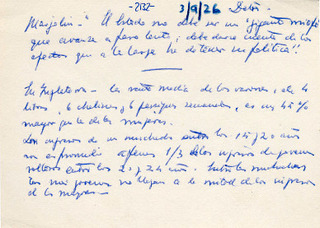 -2132-
3/9/26
Marjolin - "El Estado no debe ser un "gigante miope
que avanza a paso lento; debe darse cuenta de los
efectos que a la larga ha de tener su política".
En Inglaterra - la renta media de los varones, de 4
libros, 6 chelines, 6 peniques semanales, es un 45%
mayor que la de las mujeres.
Los ingresos de un muchacho entre los 15 y 20 años
son en promedio apenas 1/3 de los ingresos de jóvenes
solteros entre los 20 y 24 años. Entre las muchachas
las más jóvenes no llegan a la mitad de los ingresos
de las mayores -